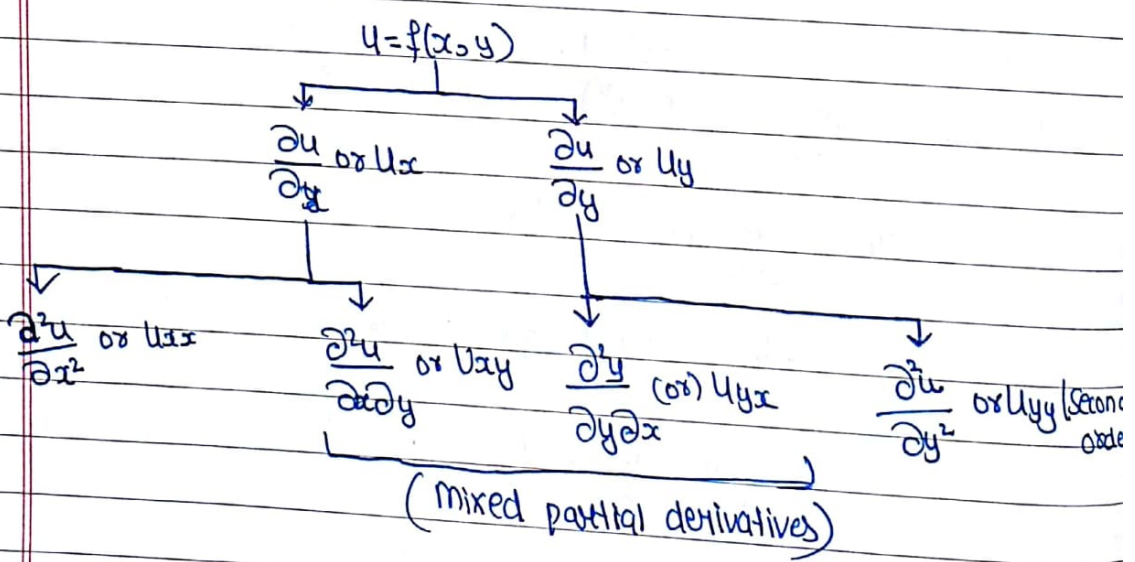 u=f(x,y)
∂u/∂x or Ux ∂u/∂y or Uy
∂²u/∂x² or Uxx ∂²u/∂x∂y or Uxy ∂²y/∂y∂x (or) Uyx ∂²u/∂y² or Uyy (Secon
orde
(mixed partial derivatives)